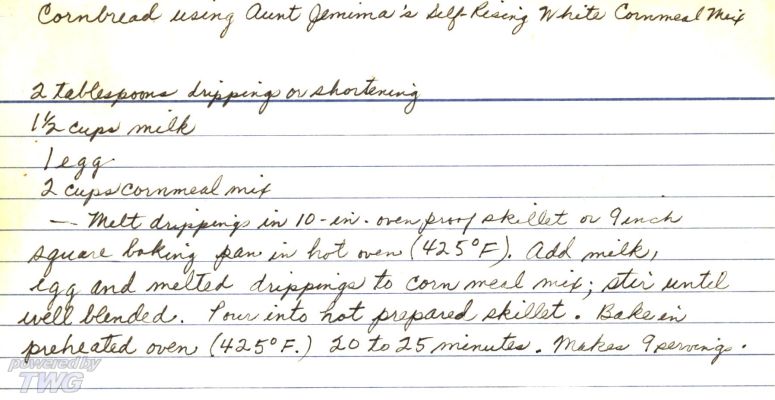 Cornbread using Aunt Jemima's Self-Rising White Cornmeal Mix
2 tablespoons dripping or shortening
1 1/2 cups milk
1 egg
2 cups cornmeal mix
— Melt drippings in 10-in. oven proof skillet or 9 inch
square baking pan in hot oven (425°F). Add milk,
egg and melted drippings to corn meal mix; stir until
well blended. Pour into hot prepared skillet. Bake in
preheated oven (425°F.) 20 to 25 minutes. Makes 9 servings.
powered by
TWG